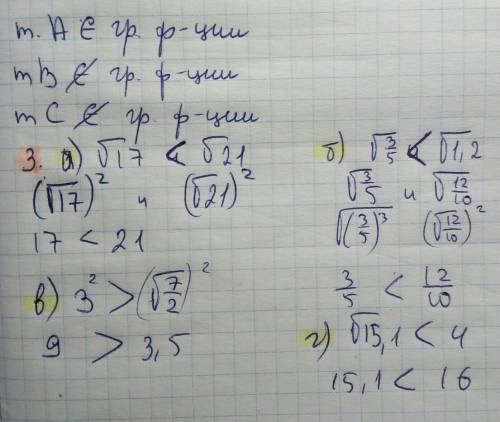 т. А ∈ гр. ф-ции
т В ∉ гр. ф-ции
т С ∉ гр. ф-ции
3. а) √17 < √21
(√17)² и (√21)²
17 < 21
б) √3/5 < √1,2
√3/5 и √12/10
√(3/5)³ (√12/10)²
3/5 < 12/10
в) 3² > (√7/2)²
9 > 3,5
г) √15,1 < 4
15,1 < 16